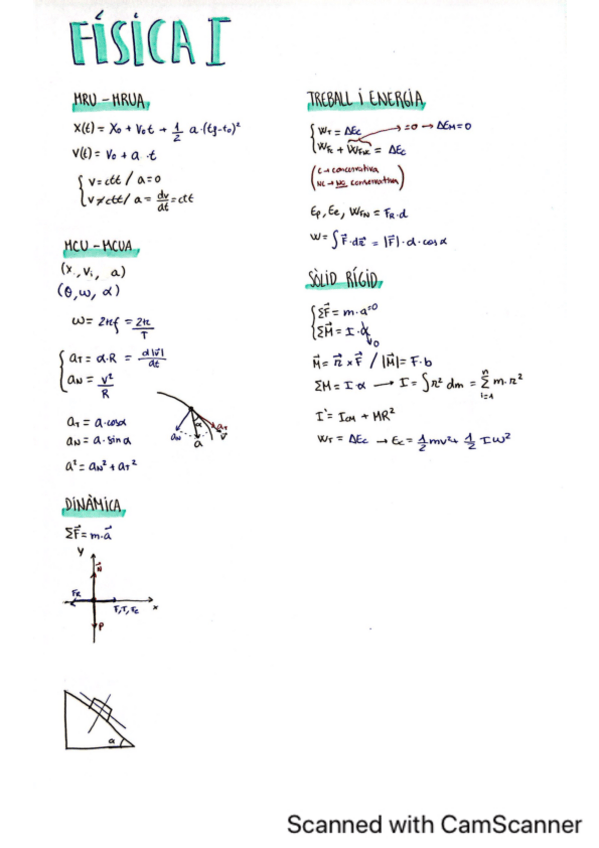 FÍSICA I
MRU - MRUA
x(t) = x₀ + v₀t + 1/2 a·(tf-t₀)²
v(t) = v₀ + a·t
v=ctt / a=0
v≠ctt / a = dv/dt = ctt
MCU - MCUA
(x, v, a)
(θ, ω, α)
ω = 2πf = 2π/T
aT = α·R = d|v⃗|/dt
aN = v²/R
aT = a·cosα
aN = a·sinα
a² = aN² + aT²
α aT
aN a v
DINÀMICA
ΣF⃗ = m·a⃗
y
N
FR
F,T,Fe x
P
α
TREBALL i ENERGIA
WT = ΔEc → =0 → ΔEM=0
WFc + WFNC = ΔEc
C → concervativa
NC → NO conservativa
Ep, Ee, WFN = FR·d
W = ∫F⃗·dr⃗ = |F⃗|·d·cosα
SÒLID RÍGID
ΣF⃗ = m·a =0
ΣM⃗ = I·α 0
M⃗ = r⃗ × F⃗ / |M| = F·b
ΣM = I·α → I = ∫r² dm = Σ m·r² n i=1
I' = ICM + MR²
WT = ΔEc → Ec = 1/2 mv² + 1/2 Iω²
Scanned with CamScanner